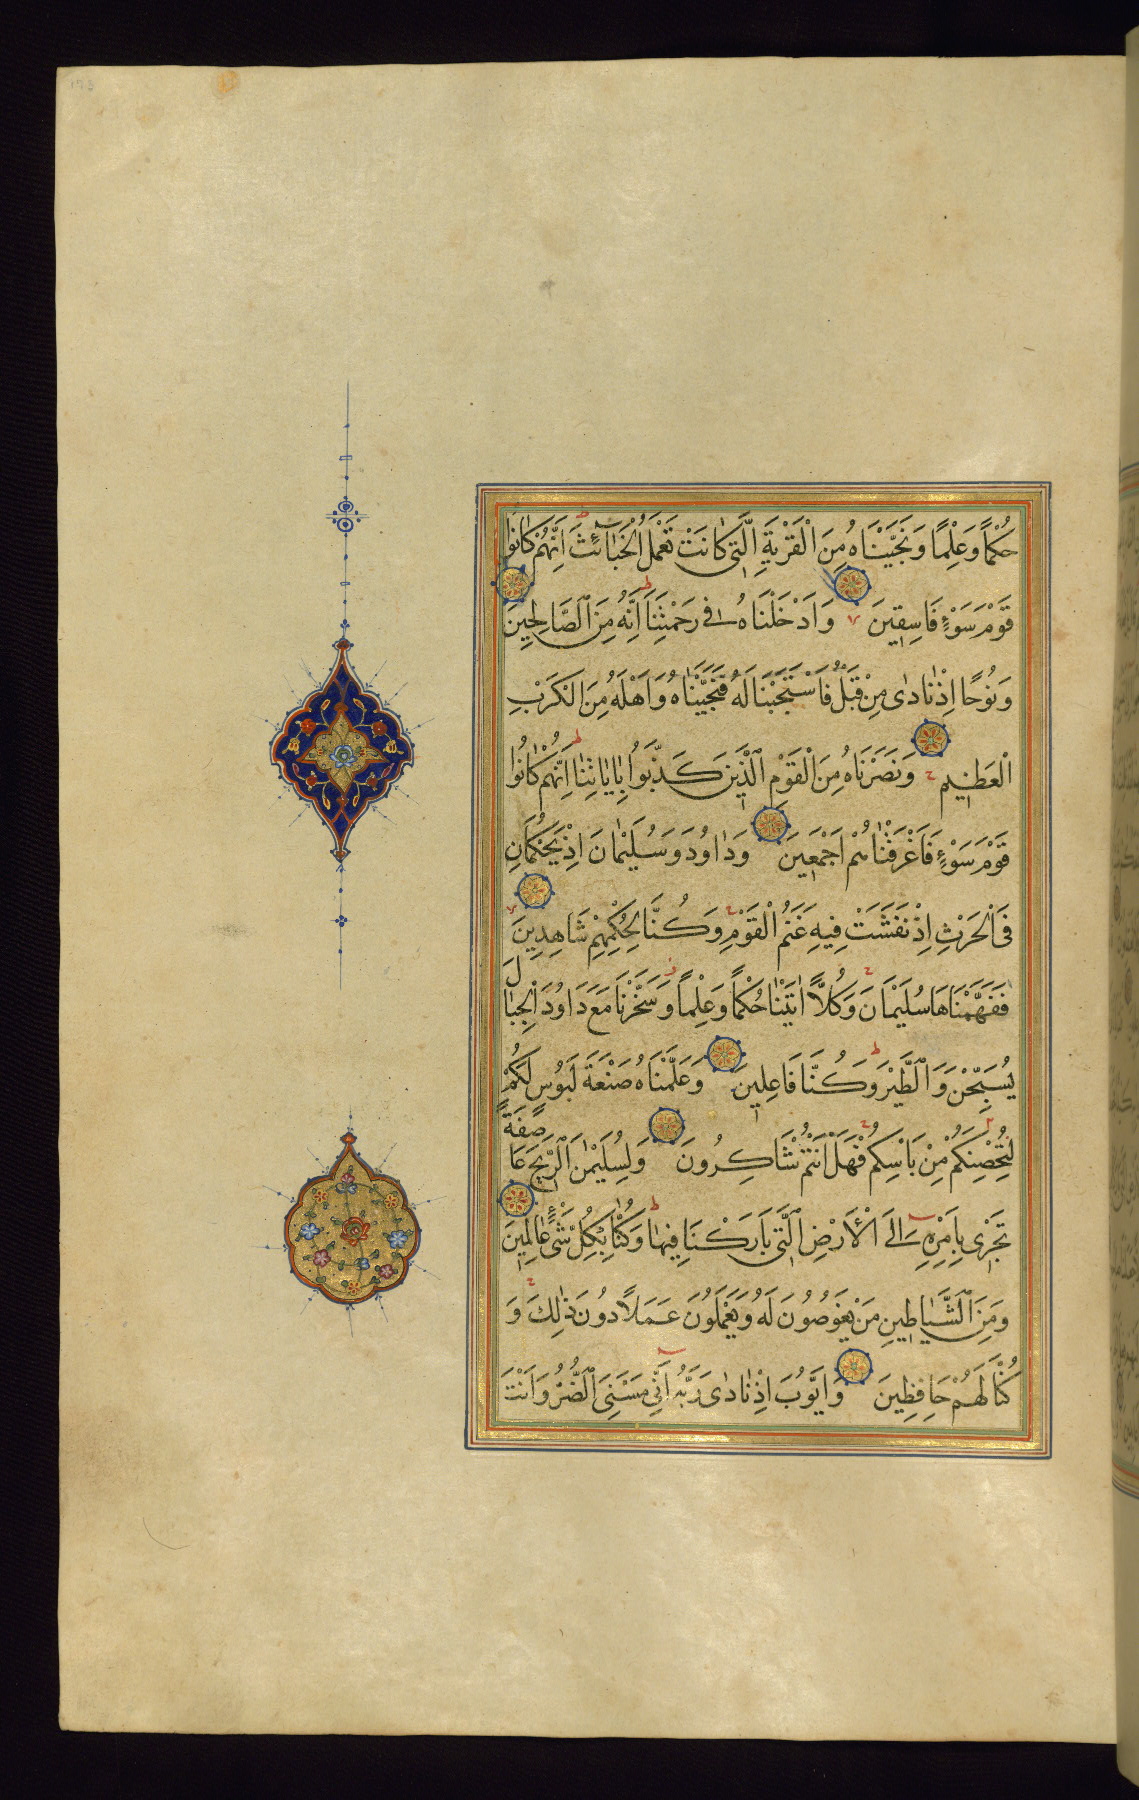 حُكْمًا وَعِلْمًا وَنَجَّيْنَاهُ مِنَ الْقَرْيَةِ الَّتِي كَانَتْ تَعْمَلُ الْخَبَائِثَ اِنَّهُمْ كَانُوا
قَوْمَ سَوْءٍ فَاسِقِينَ وَاَدْخَلْنَاهُ فِي رَحْمَتِنَا اِنَّهُ مِنَ الصَّالِحِينَ
وَنُوحًا اِذْ نَادٰى مِنْ قَبْلُ فَاسْتَجَبْنَا لَهُ فَنَجَّيْنَاهُ وَاَهْلَهُ مِنَ الْكَرْبِ
الْعَظِيمِ وَنَصَرْنَاهُ مِنَ الْقَوْمِ الَّذِينَ كَذَّبُوا بِاٰيَاتِنَا اِنَّهُمْ كَانُوا
قَوْمَ سَوْءٍ فَاَغْرَقْنَاهُمْ اَجْمَعِينَ وَدَاوُدَ وَسُلَيْمَانَ اِذْ يَحْكُمَانِ
فِي الْحَرْثِ اِذْ نَفَشَتْ فِيهِ غَنَمُ الْقَوْمِ وَكُنَّا لِحُكْمِهِمْ شَاهِدِينَ
فَفَهَّمْنَاهَا سُلَيْمَانَ وَكُلًّا اٰتَيْنَا حُكْمًا وَعِلْمًا وَسَخَّرْنَا مَعَ دَاوُدَ الْجِبَالَ
يُسَبِّحْنَ وَالطَّيْرَ وَكُنَّا فَاعِلِينَ وَعَلَّمْنَاهُ صَنْعَةَ لَبُوسٍ لَكُمْ
لِتُحْصِنَكُمْ مِنْ بَاْسِكُمْ فَهَلْ اَنْتُمْ شَاكِرُونَ وَلِسُلَيْمٰنَ الرِّيحَ عَاصِفَةً
تَجْرِي بِاَمْرِهِ اِلَى الْاَرْضِ الَّتِي بَارَكْنَا فِيهَا وَكُنَّا بِكُلِّ شَيْءٍ عَالِمِينَ
وَمِنَ الشَّيَاطِينِ مَنْ يَغُوصُونَ لَهُ وَيَعْمَلُونَ عَمَلًا دُونَ ذٰلِكَ وَ
كُنَّا لَهُمْ حَافِظِينَ وَاَيُّوبَ اِذْ نَادٰى رَبَّهُ اَنِّي مَسَّنِيَ الضُّرُّ وَاَنْتَ